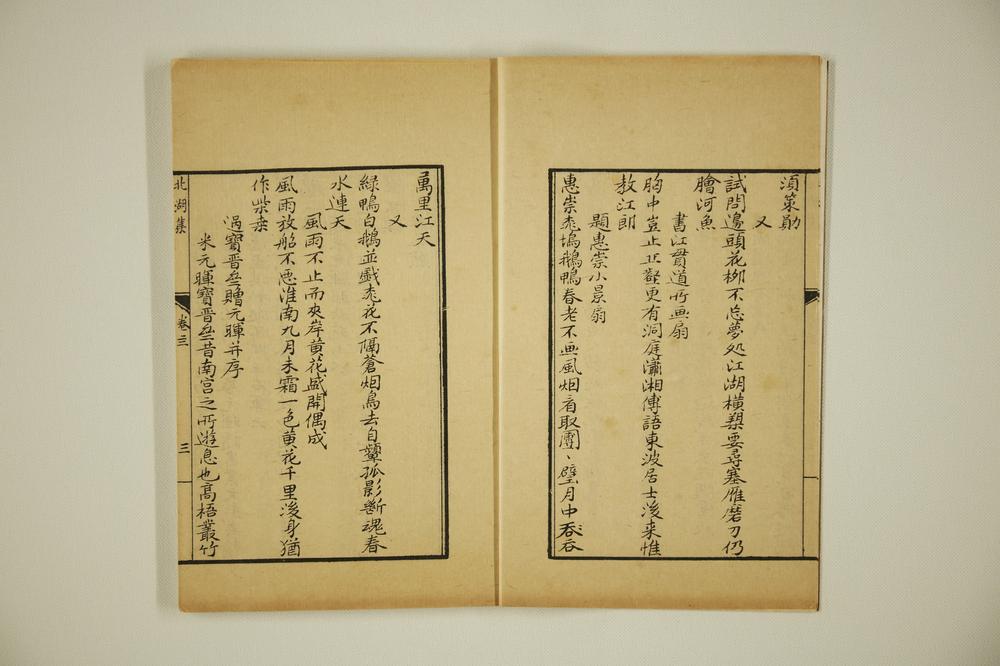 須策勛
又
試問邊頭花柳不忘夢処江湖橫槊要尋塞雁磨刀仍
膾河魚
書江貫道所画扇
胸中豈止止壑更有洞庭瀟湘傳語東坡居士後来惟
教江郎
題惠崇小景扇
惠崇桃塢鵝鴨春老不画風烟看取團〻璧月中吞
萬里江天
又
緑鴨白鵝並戯桃花不隔蒼烟鳥去自顰孤影斷魂春
水連天
風雨不止而夾岸黄花盛開偶成
風雨放船不悪淮南九月未霜一色黄花千里後身猶
作柴桑
過寶晋亝贈元暉并序
米元暉寶晋亝昔南宮之所遊息也髙梧叢竹
北湖集
卷三
三